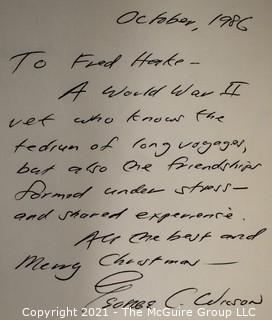 October, 1986
To Fred Hake —
A World War II
vet who knows the
tedium of long voyages,
but also the friendships
formed under stress —
and shared experience.
All the best and
Merry Christmas —
George C. Wilson
Copyright © 2021 - The McGuire Group LLC